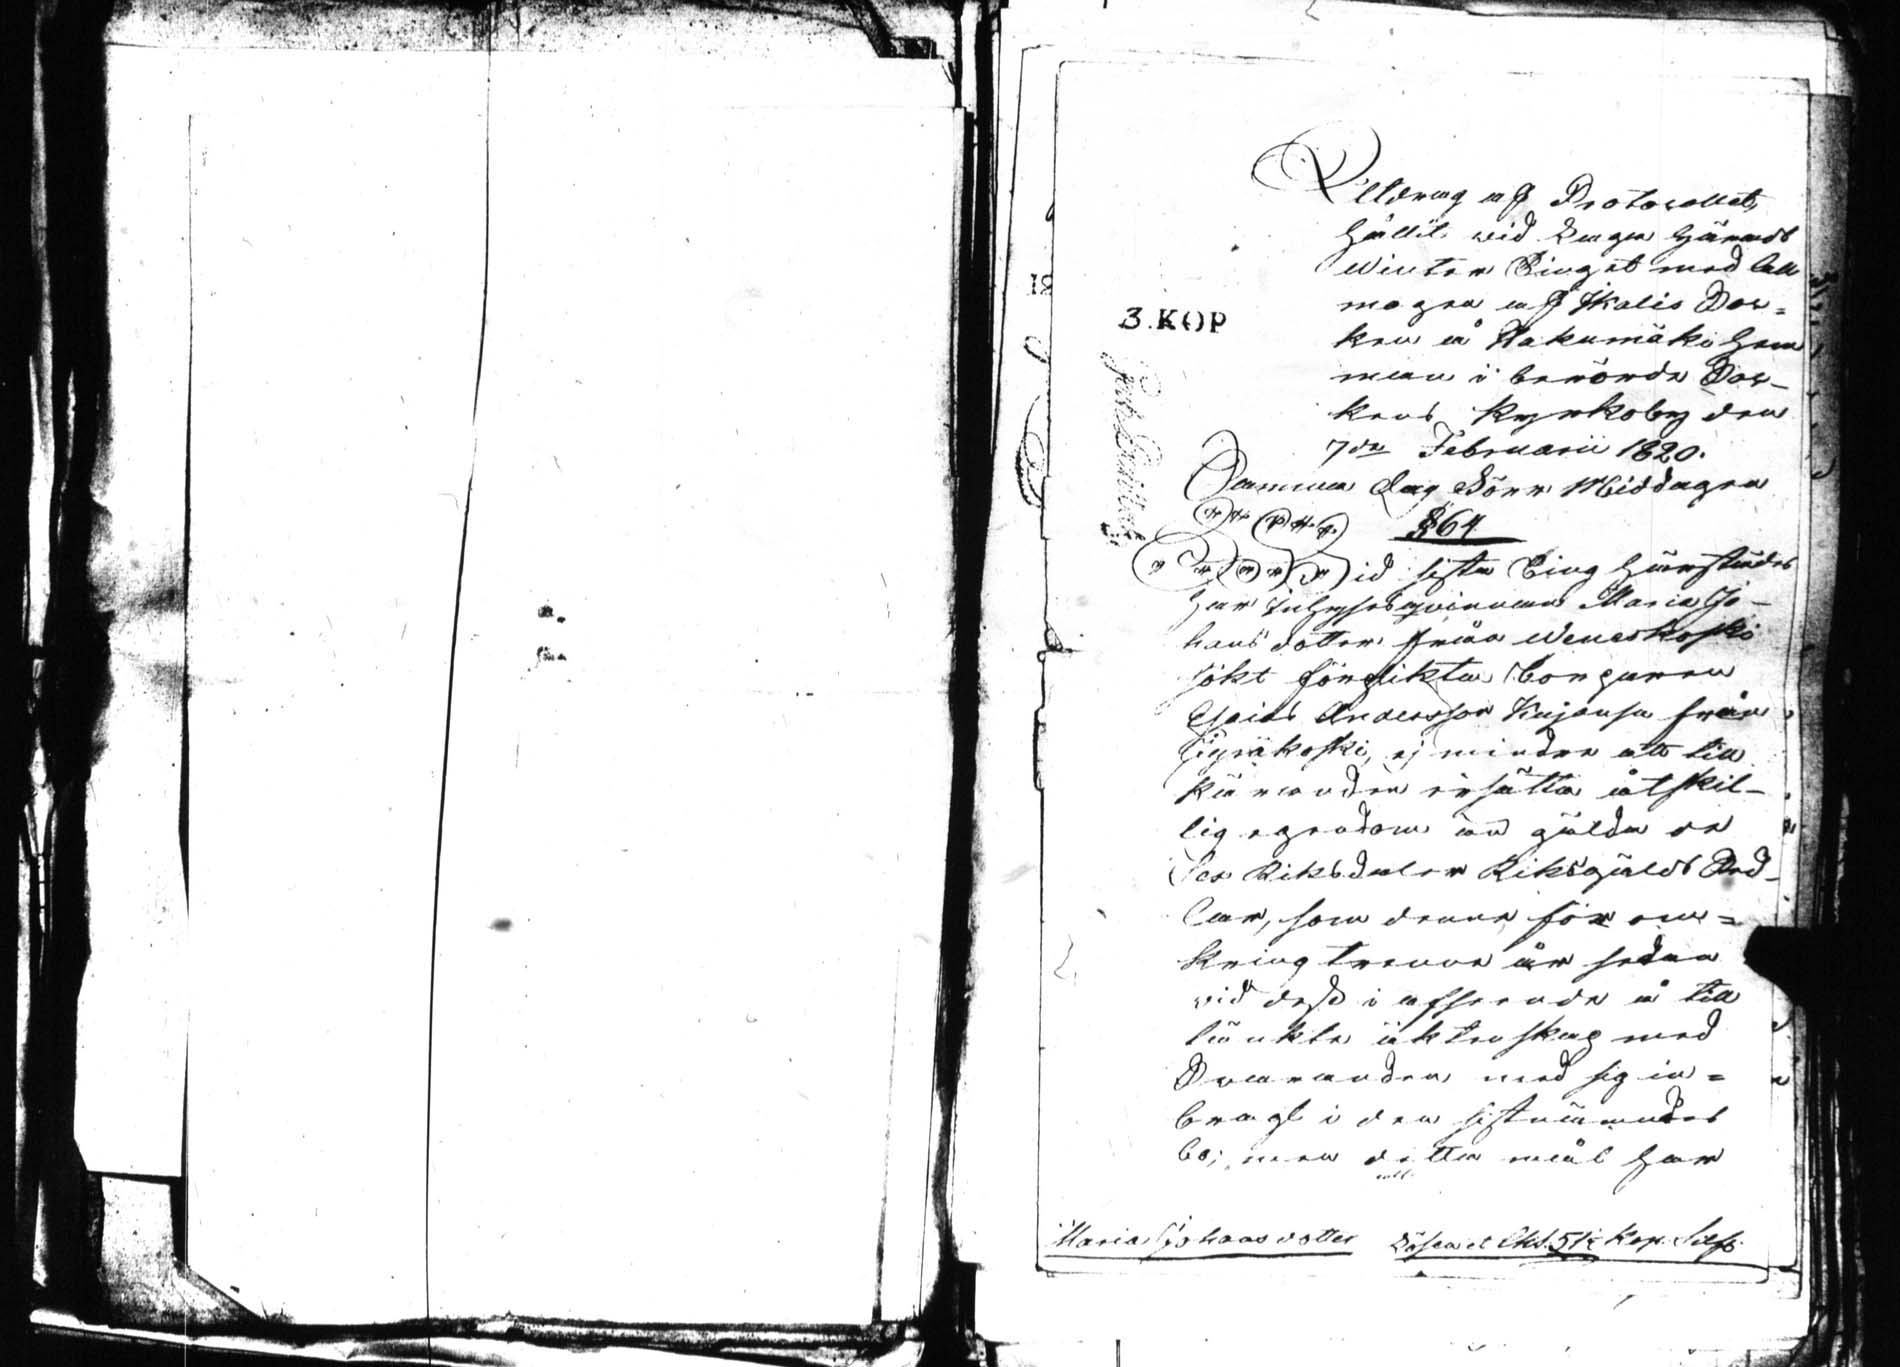 3. KOP
Utdrag af Protocollet,
hållit vid Laga Härads
Winter Tinget med all-
mogen af Ikalis Soc=
ken å Hakumäki Hem
man i berörde Soc-
kens Kyrkoby den
7de Februarii 1820.
Samma dag Förr Middagen
§ 64
Vid sista Ting härstädes
har Inhyseqvinnan Maria Jo-
hansdotter från Weneskoski
sökt förplikta Torparen
Esaias Andersson Kajansa från
Kyröskoski, ej mindre att till
Käranden ersätta åtskil-
lig egendom än gälda de
Sex Riksdaler Riksgälds Sed-
lar, som denne för om=
kring trenne år sedan
vid dess i afseende å till
tänkte äktenskap med
Svaranden med sig in=
bragt i den sistnämndes
bo; men detta mål har
Maria Johansdotter Lösen et Chs. 51½ Kop. Silfr.